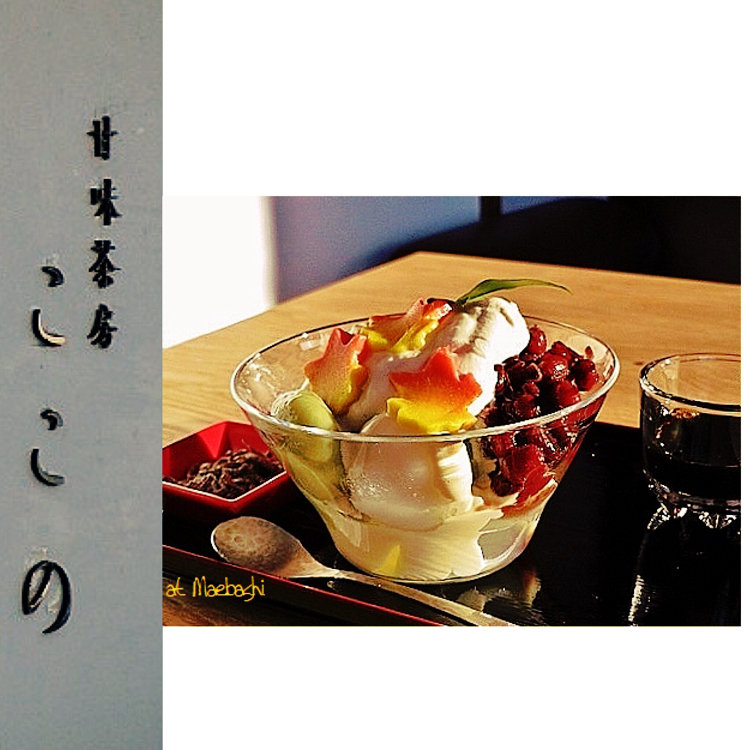 甘味茶房
こ
こ
の
at Maebashi